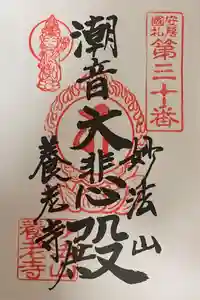 安房
國札
第三十番
潮音大悲殿
妙法山
養老寺
養老寺